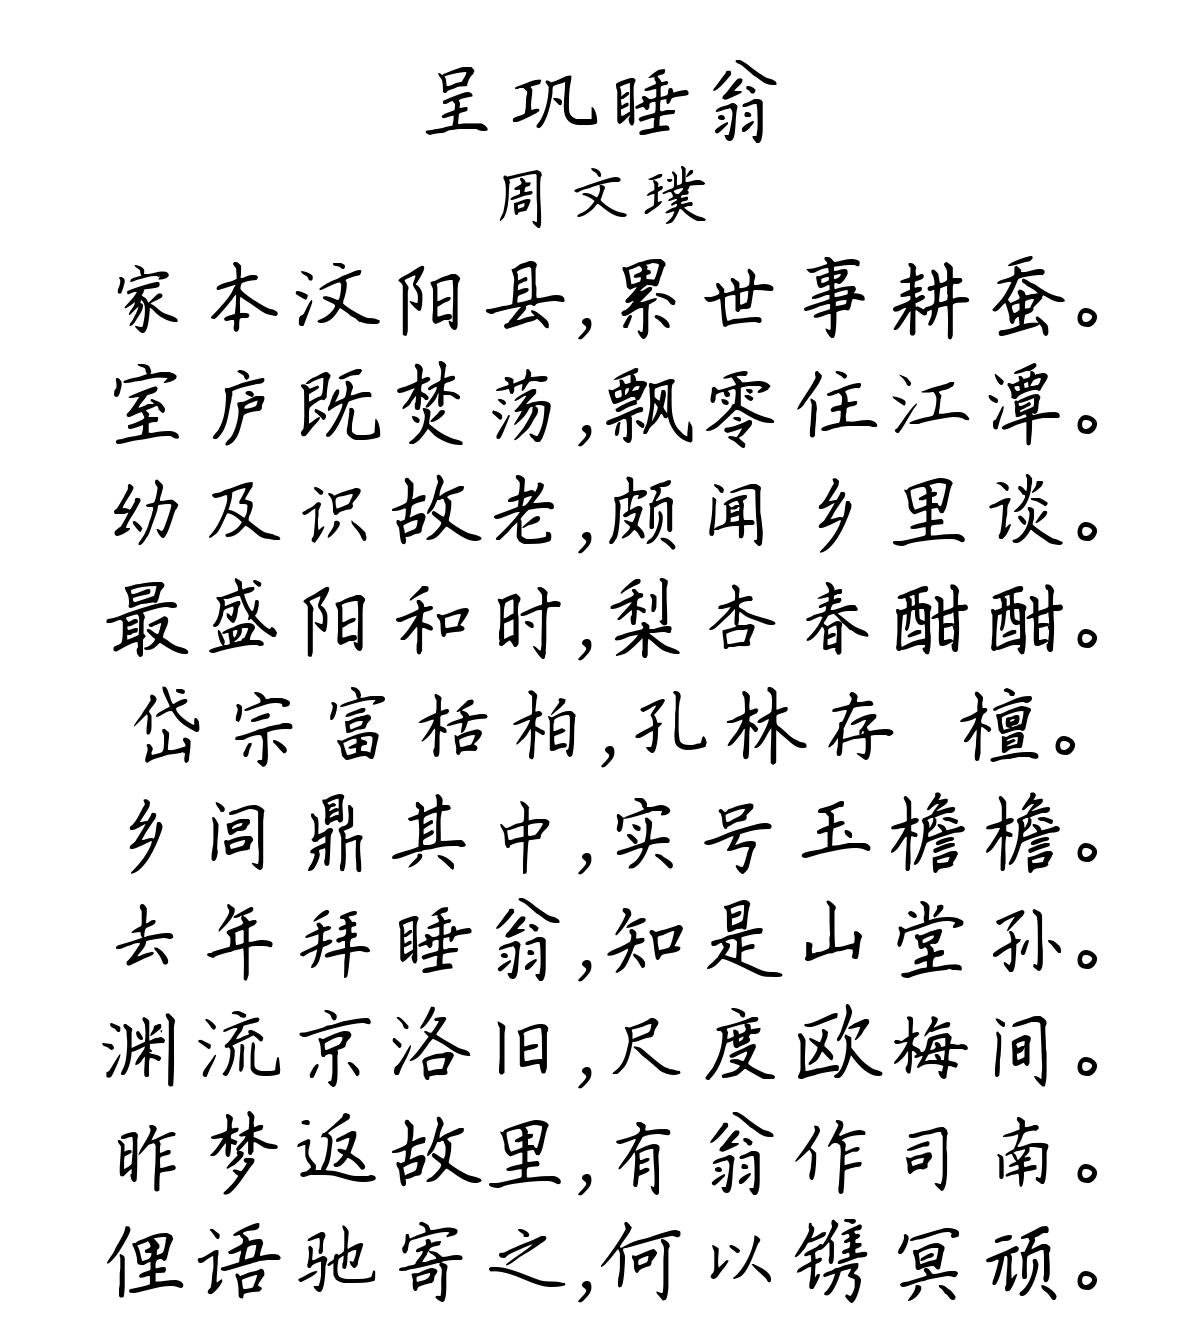 呈巩睡翁
周文璞
家本汶阳县,累世事耕蚕。
室庐既焚荡,飘零住江潭。
幼及识故老,颇闻乡里谈。
最盛阳和时,梨杏春酣酣。
岱宗富栝柏,孔林存 檀。
乡闾鼎其中,实号玉檐檐。
去年拜睡翁,知是山堂孙。
渊流京洛旧,尺度欧梅间。
昨梦返故里,有翁作司南。
俚语驰寄之,何以镌冥顽。